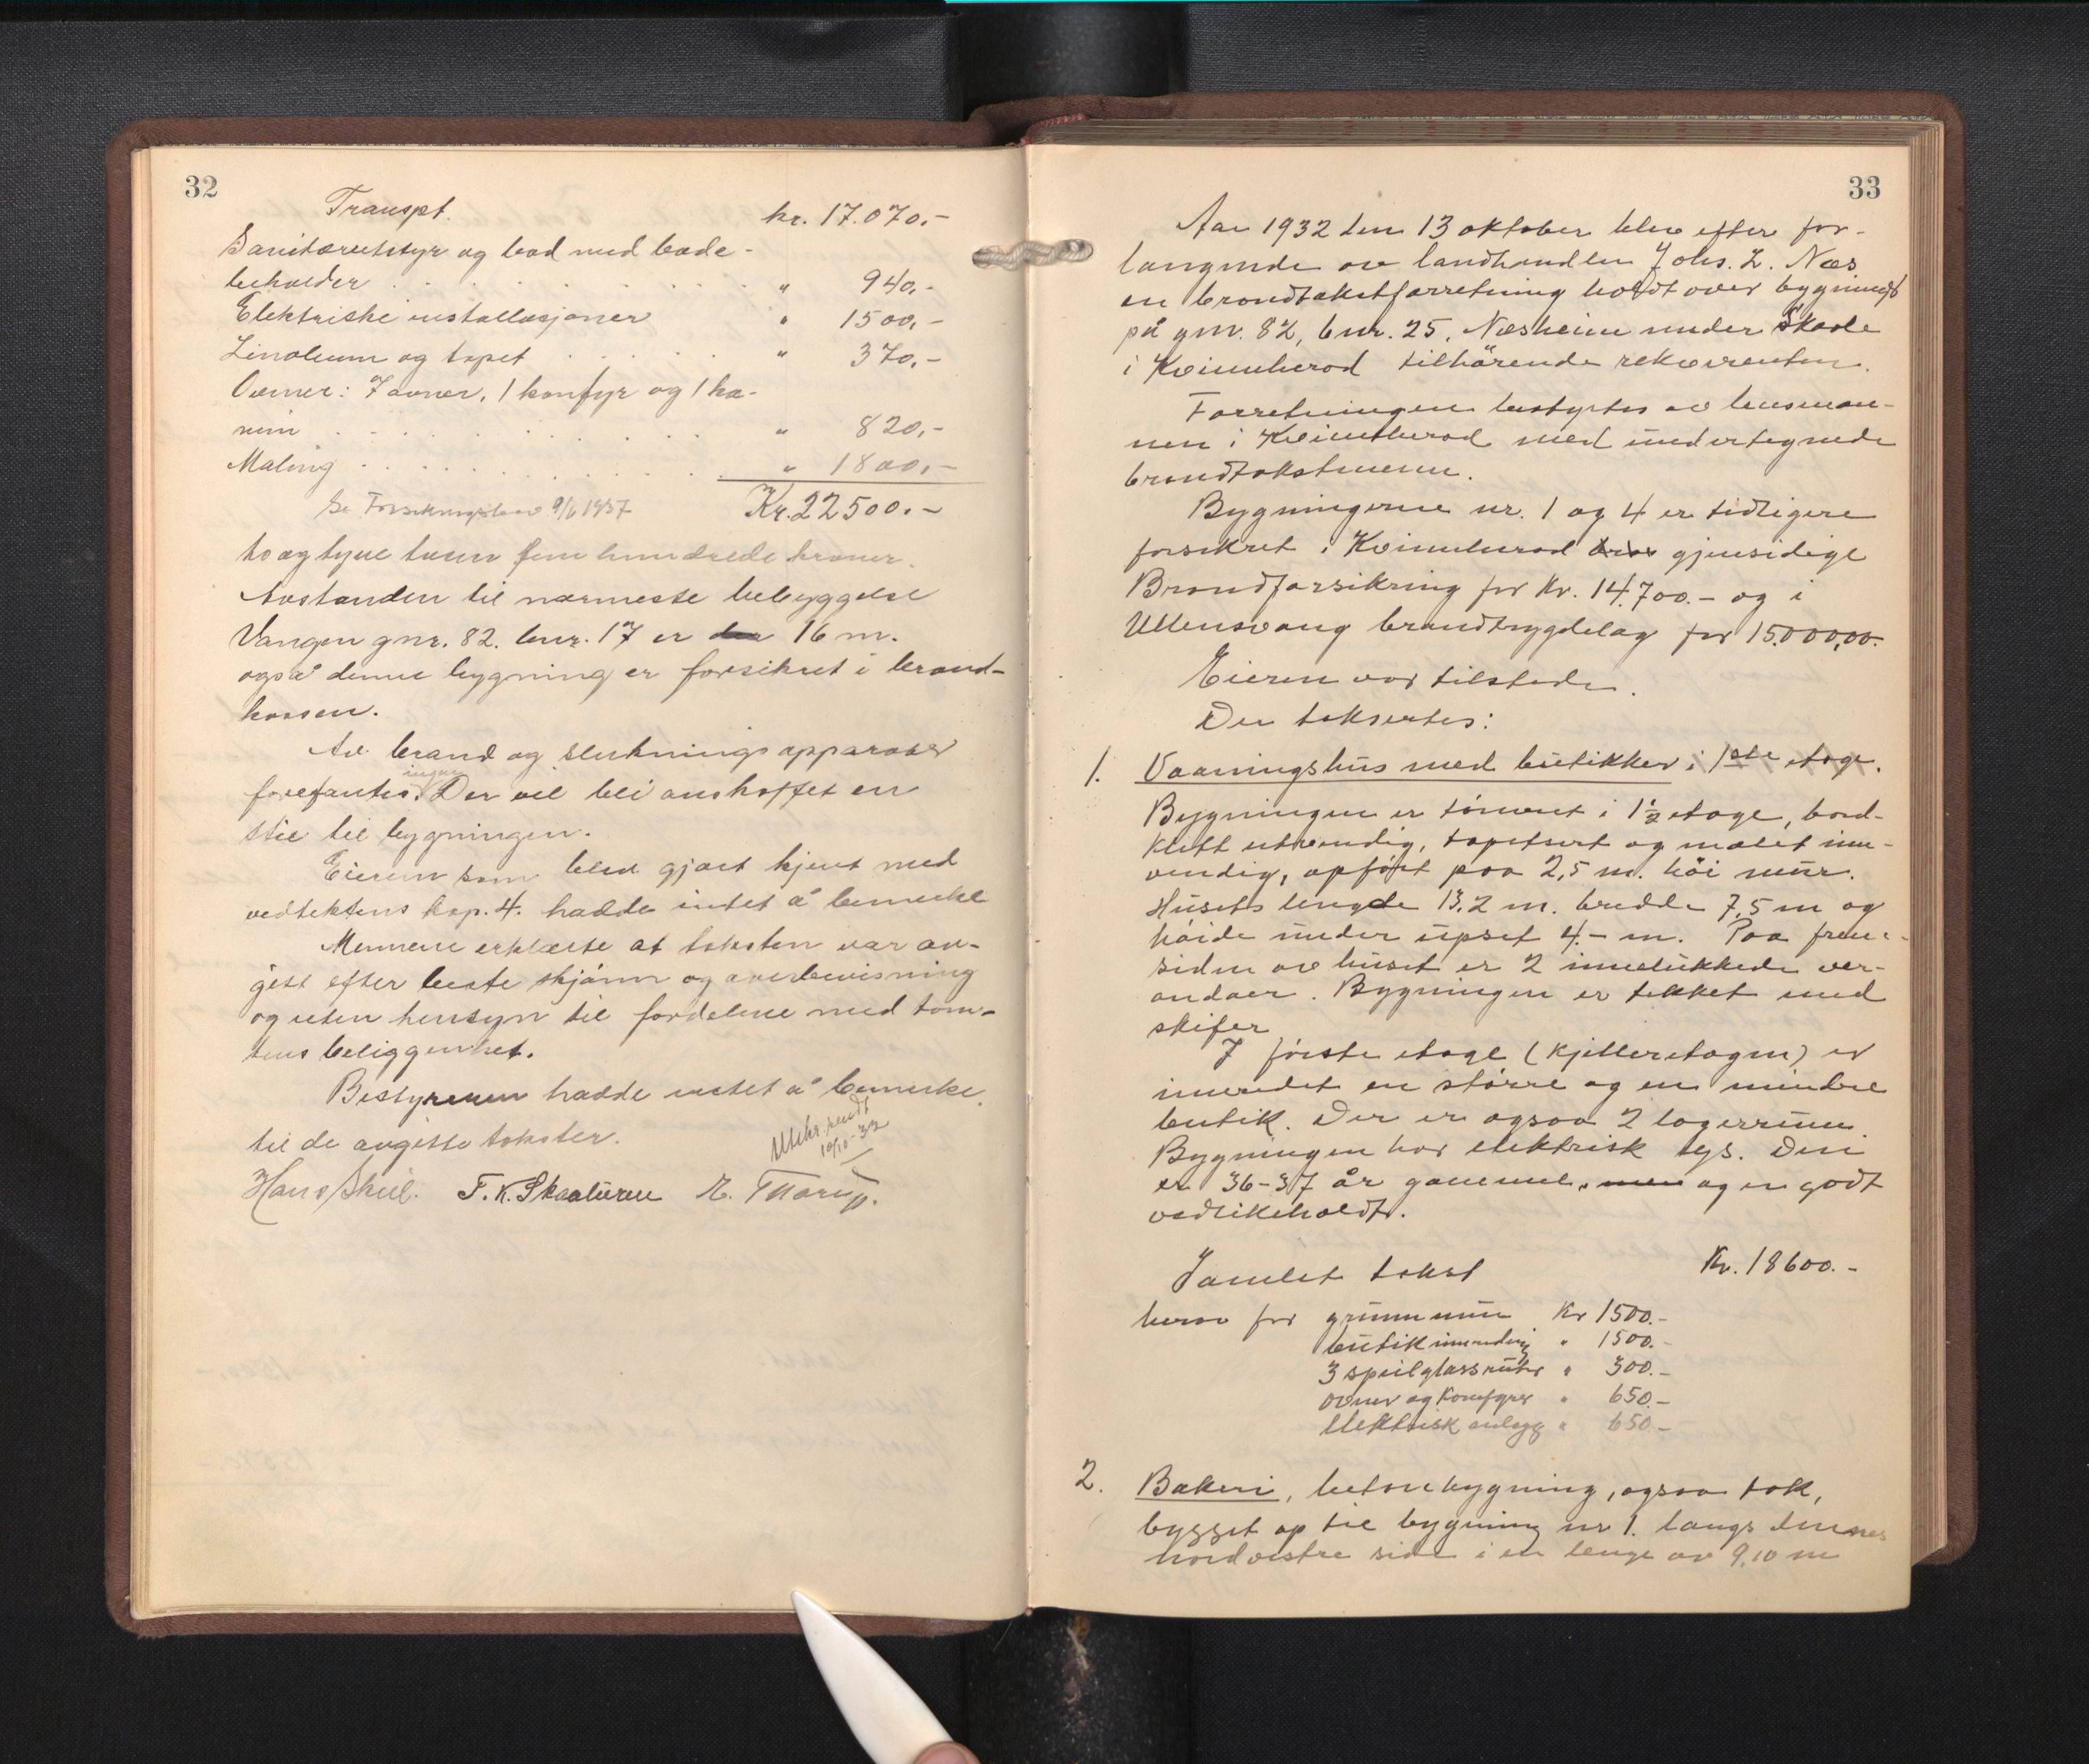 32
Transpt. kr. 17.070.-
Sanitærutstyr og bad med bade-
beholder . . . . . . . . " 940,-
Elektriske installasjoner " 1500,-
Linoleum og tapet . . . . . " 370,-
Ovner: 7 ovner, 1 komfyr og 1 ka-
min . . . . . . . . . " 820,-
Maling . . . . . . . . " 1800,-
Se Forsikringsbev 9/6 1937 Kr. 22500.-
to og tyve tusen fem hundrede kroner.
Avstanden til nærmeste bebyggelse
Vangen gnr. 82. bnr. 17 er 16 m.
også denne bygning er forsikret i brand-
kassen.
Av brand og slukningsapparater
forefantes ingen. Der vil bli anskaffet en
stie til bygningen.
Eieren som blev gjort kjent med
vedtektens kap. 4. hadde intet å bemerke
Mennene erklærte at taksten var an-
gitt efter beste skjönn og overbevisning
og uten hensyn til fordelene med tom-
tens beliggenhet.
Bestyreren hadde intet å bemerke
til de avgitte takster.
Utskr. sendt
10/10-32
Hans Skeie. T. K. Skaaluren E. Thorup.
33
Aar 1932 den 13 oktober blev efter for-
langende av landhandler Johs. L. Næs
en brandtakstforretning holdt over bygninger
på gnr. 82, bnr. 25, Næsheim under Skaale
i Kvinnherad tilhörende rekvirenten.
Forretningen bestyrtes av lensman-
nen i Kvinnherad med undertegnede
brandtakstmenn.
Bygningerne nr. 1 og 4 er tidligere
forsikret i Kvinnherad gjensidige
Brandforsikring for Kr. 14.700.- og i
Ullensvang brandtrygdelag for 15.000,00.
Eieren var tilstede.
Der taksertes:
1. Vaaningshus med butikker i 1ste etage.
Bygningen er tömret i 1½ etage, bord-
klætt utvendig, tapetsert og malet inn-
vendig, opfört paa 2,5 m. höi mur.
Husets lengde 13,2 m. bredde 7,5 m og
höide under upset 4.- m. Paa frem-
siden av huset er 2 innelukkede ver-
andaer. Bygningen er tekket med
skifer
I förste etage (kjelleretagen) er
innredet en större og en mindre
butik. Der er ogsaa 2 lagerrum
Bygningen har elektrisk lys. Den
er 36-37 år gammel, men og er godt
vedlikeholdt.
Samlet takst Kr. 18600.-
herav for grunnmur Kr 1500.-
butikinnredning " 1500.-
3 speilglassruter " 300.-
ovner og komfyrer " 650.-
Elektrisk anlegg " 650-
2. Bakeri, betonbygning, ogsaa tak,
bygget op til bygning nr 1. langs dennes
nordvestre side i en lengde av 9,10 m